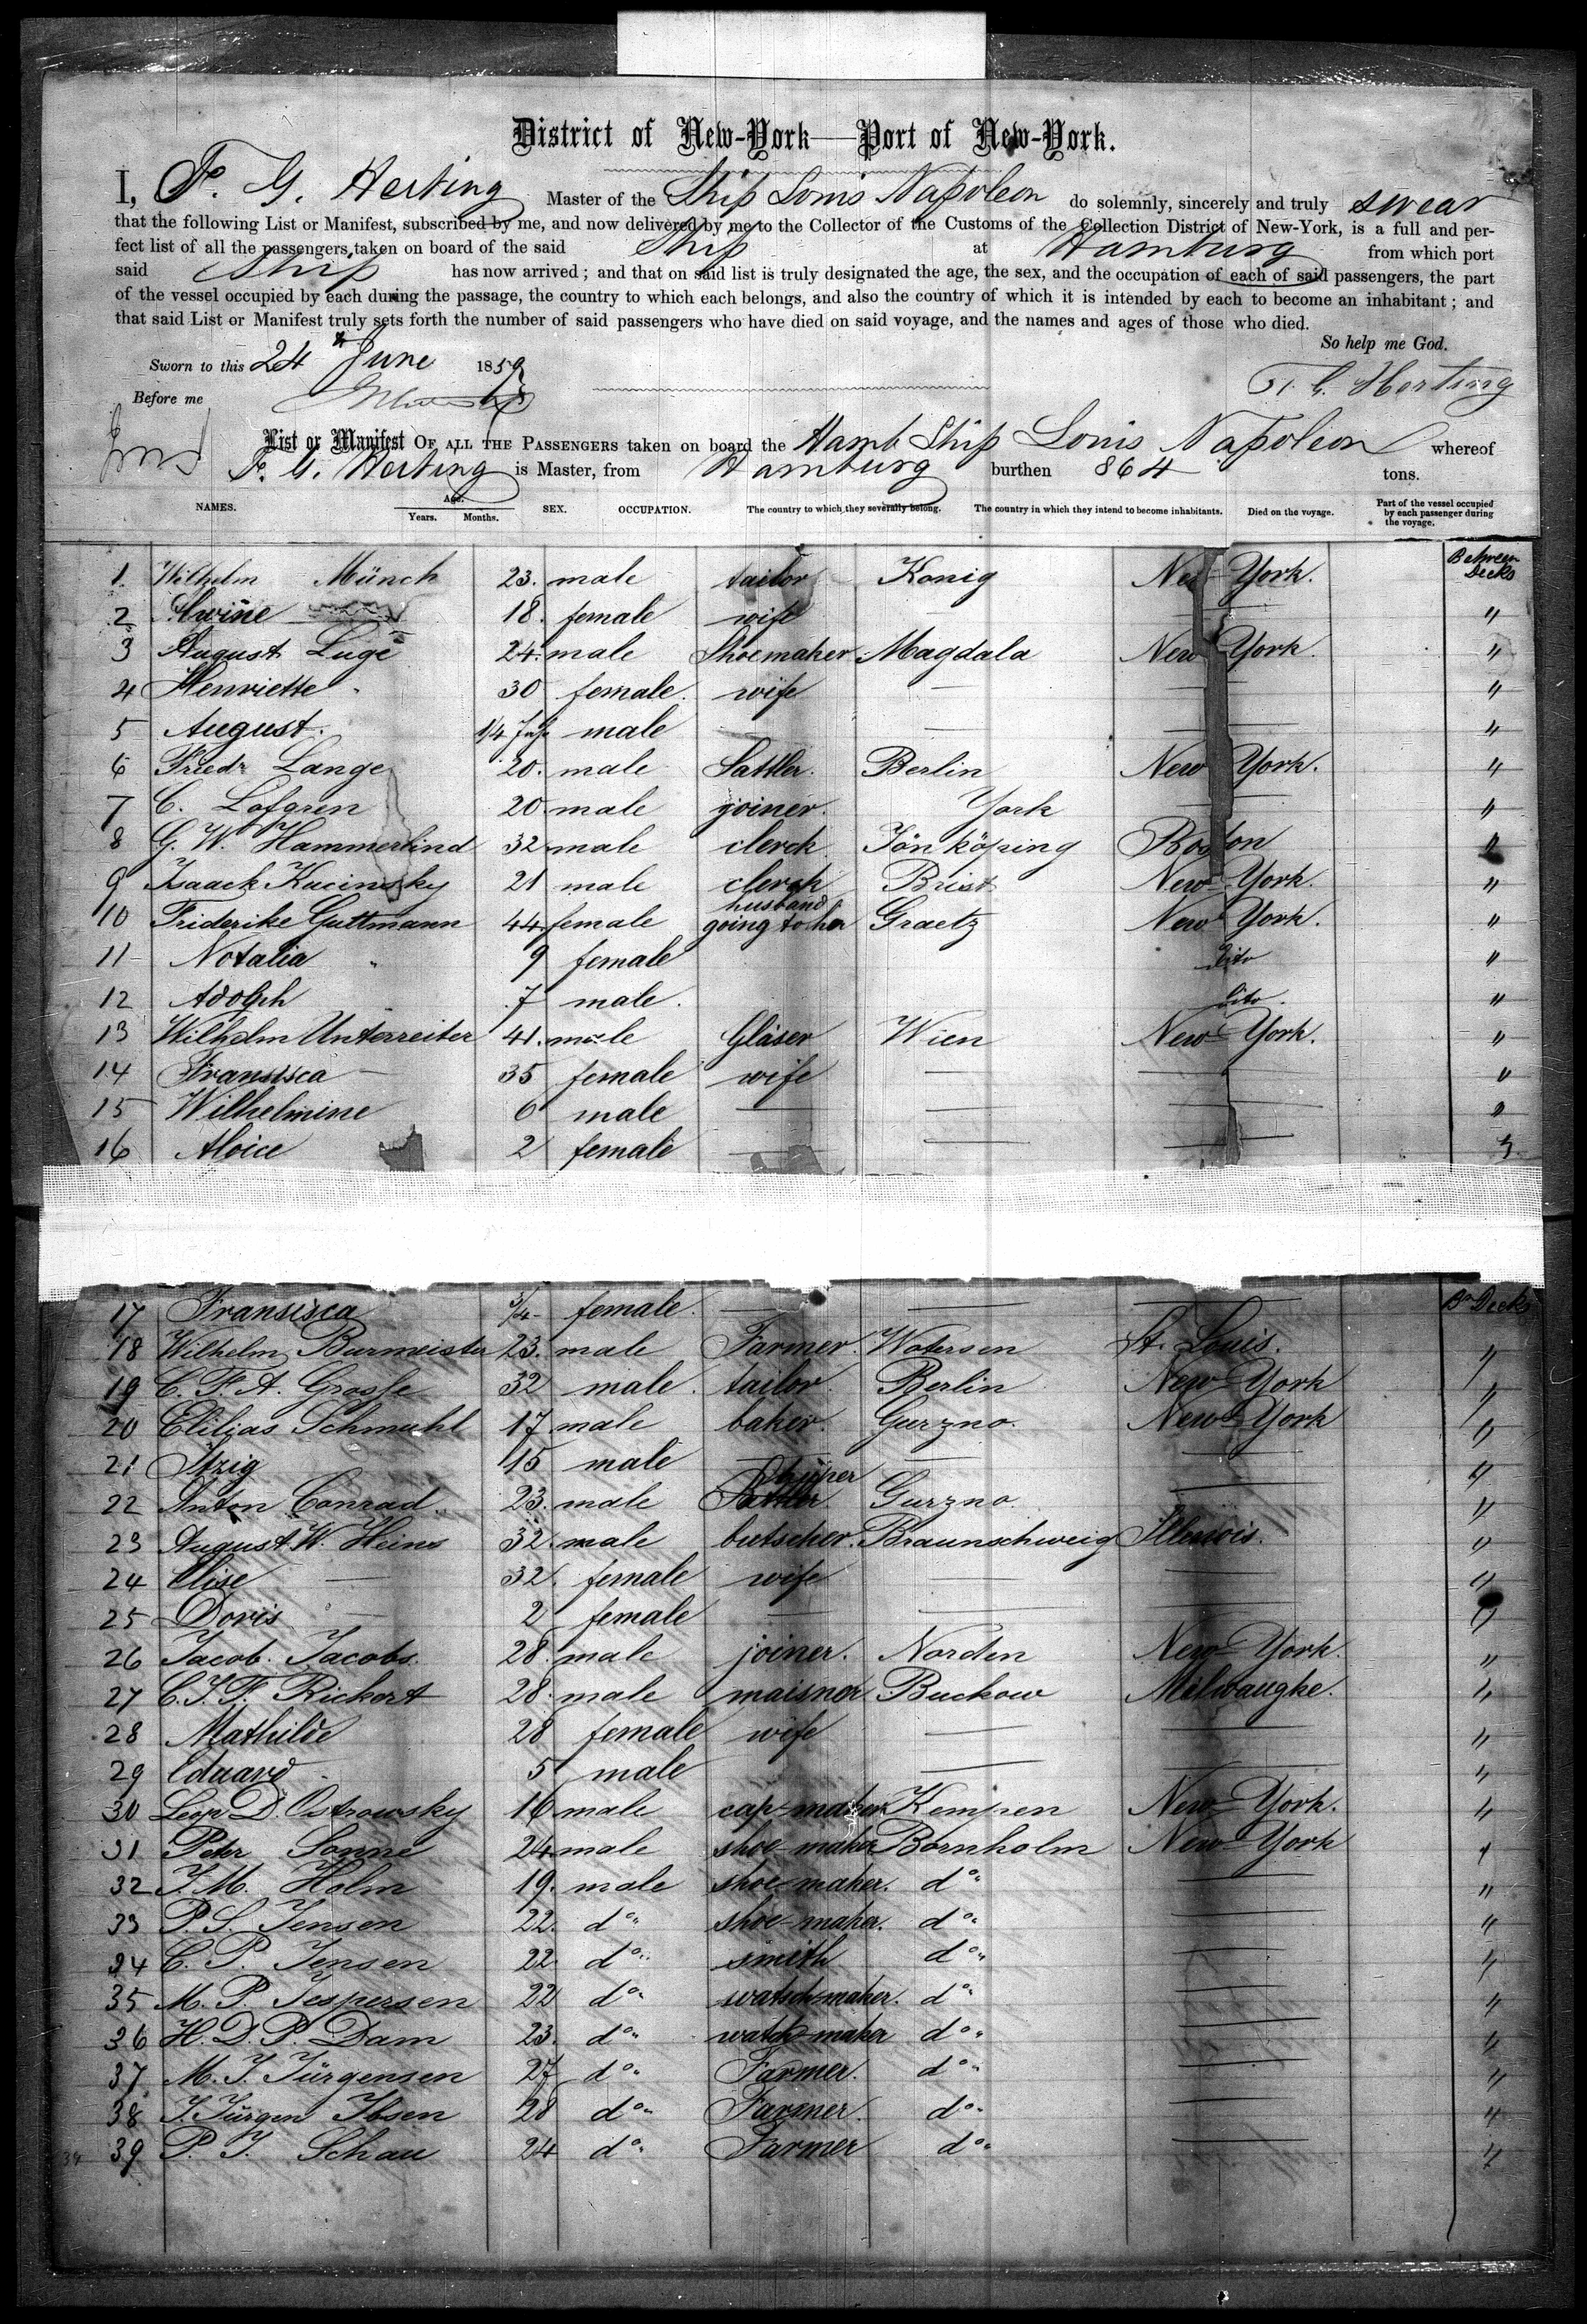 District of New-York—Port of New-York.
I, F. G. Herting Master of the Ship Louis Napoleon do solemnly, sincerely and truly swear
that the following List or Manifest, subscribed by me, and now delivered by me to the Collector of the Customs of the Collection District of New-York, is a full and per-
fect list of all the passengers taken on board of the said Ship at Hamburg from which port
said Ship has now arrived; and that on said list is truly designated the age, the sex, and the occupation of each of said passengers, the part
of the vessel occupied by each during the passage, the country to which each belongs, and also the country of which it is intended by each to become an inhabitant; and
that said List or Manifest truly sets forth the number of said passengers who have died on said voyage, and the names and ages of those who died.
So help me God.
Sworn to this 24 June 1859
F. G. Herting
Before me
List or Manifest OF ALL THE PASSENGERS taken on board the Hamb Ship Louis Napoleon whereof
F. G. Herting is Master, from Hamburg burthen 864 tons.
NAMES. Age. Years. Months. SEX. OCCUPATION. The country to which they severally belong. The country in which they intend to become inhabitants. Died on the voyage. Part of the vessel occupied by each passenger during the voyage.
1. Wilhelm Münch 23. male tailor Konig New York. Between Decks
2 Alwine 18. female wife — "
3 August Luge 24. male Shoemaker Magdala New York. "
4 Henriette 30 female. wife — — "
5 August. 1/4 male — — "
6 Friedr Lange 20. male Sattler. Berlin New York. "
7 C. Lofgren 20. male joiner. York — "
8 G. W. Hammerlind 32 male clerck Jönköping Boston "
9 Isaack Kucinsky 21 male clerck Brist New-York. "
10 Friderike Guttmann 44 female going to her husband Graetz New York. "
11 Notalia " 9 female dito "
12 Adolph 7 male. dito. "
13 Wilhelm Unterreiter 41. male Gläser Wien New-York. "
14 Fransisca — 35 female wife — — "
15 Wilhelmine 6 male — — — "
16 Aloice 2 female — — — "
17 Fransisca 3/4 female. — — — Bn Decks
18 Wilhelm Burmeister 23. male Farmer. Wotersen St. Louis. "
19 C. F. A. Grosse 32 male. tailor Berlin New-York "
20 Cliljas Schmuhl 17. male baker. Gurzno. New-York "
21 Itzig 15 male — — — "
22 Anton Conrad 23. male Gurzno. — "
23 August W. Heins 32. male butscher. Braunschweig Illinois. "
24 Elise — 32. female wife — — "
25 Doris — 2 female — — — "
26 Jacob. Jacobs. 28. male joiner. Norden New-York. "
27 C. J. F. Rickert 28. male maisner Buckow Milwaughe. "
28 Mathilde 28 female wife — — "
29 Eduard 5 male — — "
30 Leop D. Ostrowsky 16 male cap-maker Kempen New-York. "
31 Peter Sonne 24 male shoe-maker Bornholm New-York "
32 J. M. Holm 19. male shoe-maker. do — "
33 P. S. Jensen 22. do shoe-maker. do — "
34 C. P. Jensen 22. do smith do — "
35 M. P. Jespersen 22 do watsch-maker. do — "
36 H. D. P. Dam 23. do watch-maker do — "
37 M. J. Jürgensen 27 do Farmer. do — "
38 J. Jürgen Ibsen 28 do Farmer. do — "
39 P. J. Schau 24 do Farmer do — "